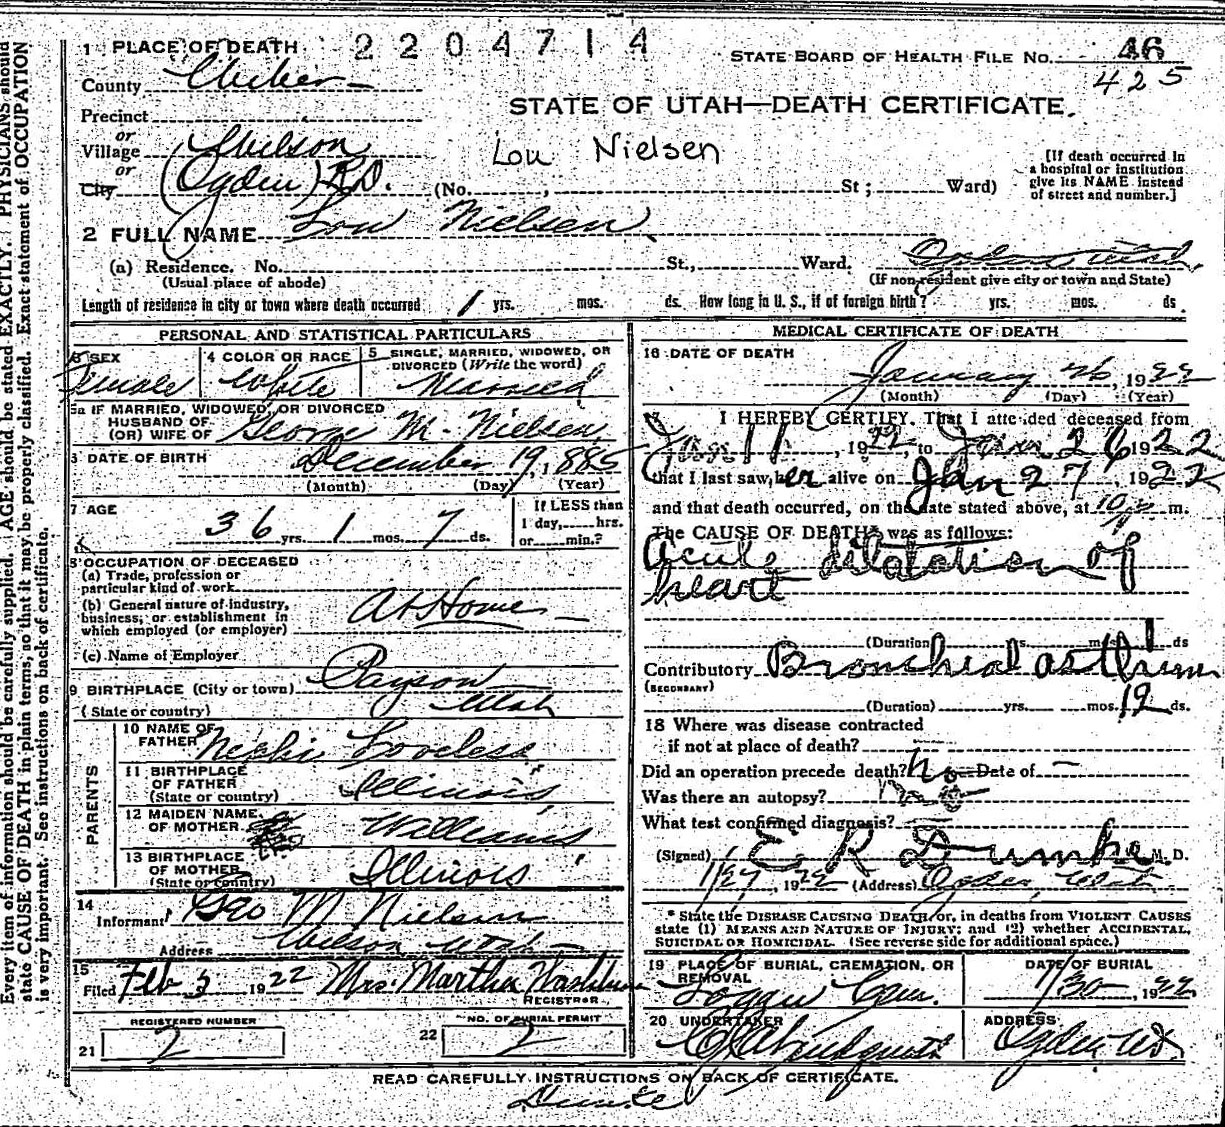 1 PLACE OF DEATH 2204714
STATE BOARD OF HEALTH FILE No. 46
425
County Weber
STATE OF UTAH—DEATH CERTIFICATE.
Precinct
or
Village Wilson
Lou Nielsen
or
City (Ogden) R.D. (No. , St ; Ward)
[If death occurred in
a hospital or institution
give its NAME instead
of street and number.]
2 FULL NAME Lou Nielsen
(a) Residence. No. St., Ward. Ogden Utah
(Usual place of abode) (If non-resident give city or town and State)
Length of residence in city or town where death occurred 1 yrs. mos. ds. How long in U. S., if of foreign birth? yrs. mos. ds
PERSONAL AND STATISTICAL PARTICULARS
3 SEX
Female
4 COLOR OR RACE
White
5 SINGLE, MARRIED, WIDOWED, OR
DIVORCED (Write the word)
Married
5a IF MARRIED, WIDOWED, OR DIVORCED
HUSBAND OF
(OR) WIFE OF George M. Nielsen
DATE OF BIRTH December 19, 1885
(Month) (Day) (Year)
7 AGE
36 yrs. 1 mos. 7 ds.
If LESS than
1 day, hrs.
or min.?
8 OCCUPATION OF DECEASED
(a) Trade, profession or
particular kind of work
(b) General nature of industry,
business, or establishment in
which employed (or employer) At Home
(c) Name of Employer
9 BIRTHPLACE (City or town) Payson
(State or country) Utah
PARENTS
10 NAME OF
FATHER Nephi Loveless
11 BIRTHPLACE
OF FATHER
(State or country) Illinois
12 MAIDEN NAME
OF MOTHER Williams
13 BIRTHPLACE
OF MOTHER
(State or country) Illinois
14
Informant Geo M Nielsen
Address Wilson Utah
15
Filed Feb 3 1922 Mrs. Martha Washburn
REGISTRAR
REGISTERED NUMBER
21 2
NO. OF BURIAL PERMIT
22 2
MEDICAL CERTIFICATE OF DEATH
16 DATE OF DEATH
January 26, 1922
(Month) (Day) (Year)
17 I HEREBY CERTIFY, That I attended deceased from
Jan 11, 1922, to Jan 26 1922
that I last saw her alive on Jan 27, 1922
and that death occurred, on the date stated above, at 10 p m.
The CAUSE OF DEATH* was as follows:
Acute dilatation of
heart
(Duration) yrs. mos. 1 ds
Contributory Bronchial asthma
(SECONDARY)
(Duration) yrs. mos. 12 ds.
18 Where was disease contracted
if not at place of death?
Did an operation precede death? no Date of —
Was there an autopsy? no
What test confirmed diagnosis?
(Signed) E R Dumke M. D.
1/27, 1922 (Address) Ogden, Utah
* State the DISEASE CAUSING DEATH, or, in deaths from VIOLENT CAUSES
state (1) MEANS AND NATURE OF INJURY; and (2) whether ACCIDENTAL,
SUICIDAL OR HOMICIDAL. (See reverse side for additional space.)
19 PLACE OF BURIAL, CREMATION, OR
REMOVAL
Cem.
DATE OF BURIAL
1/30, 1922
20 UNDERTAKER
Lindquist
ADDRESS
Ogden Ut.
READ CAREFULLY INSTRUCTIONS ON BACK OF CERTIFICATE.
Dumke
Every item of information should be carefully supplied. AGE should be stated EXACTLY. PHYSICIANS should
state CAUSE OF DEATH in plain terms, so that it may be properly classified. Exact statement of OCCUPATION
is very important. See instructions on back of certificate.